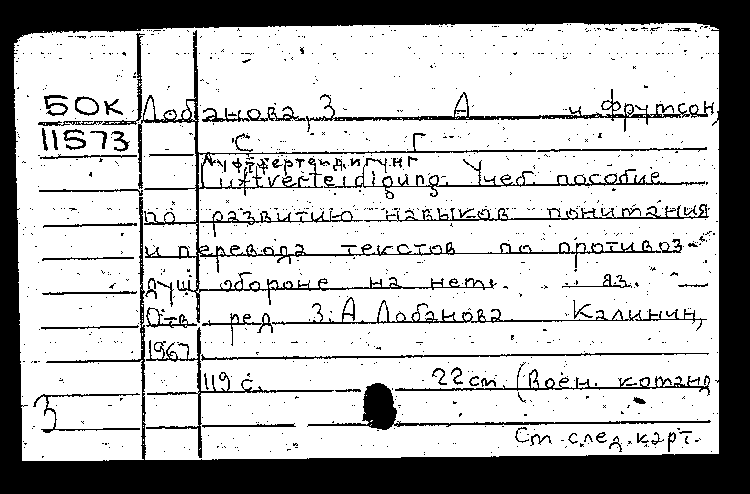 50К Лобанова, З А и Фрумсон,
11573 С Г
Луфтфертейдигунг
Luftverteidigung. Учеб. пособие
по развитию навыков понимания
и перевода текстов по противовоз-
душ. обороне на нем. яз.
Отв. ред. З.А. Лобанова. Калинин,
1967
119 с. 22 см. (Воен. команд.
З
См. след. карт.